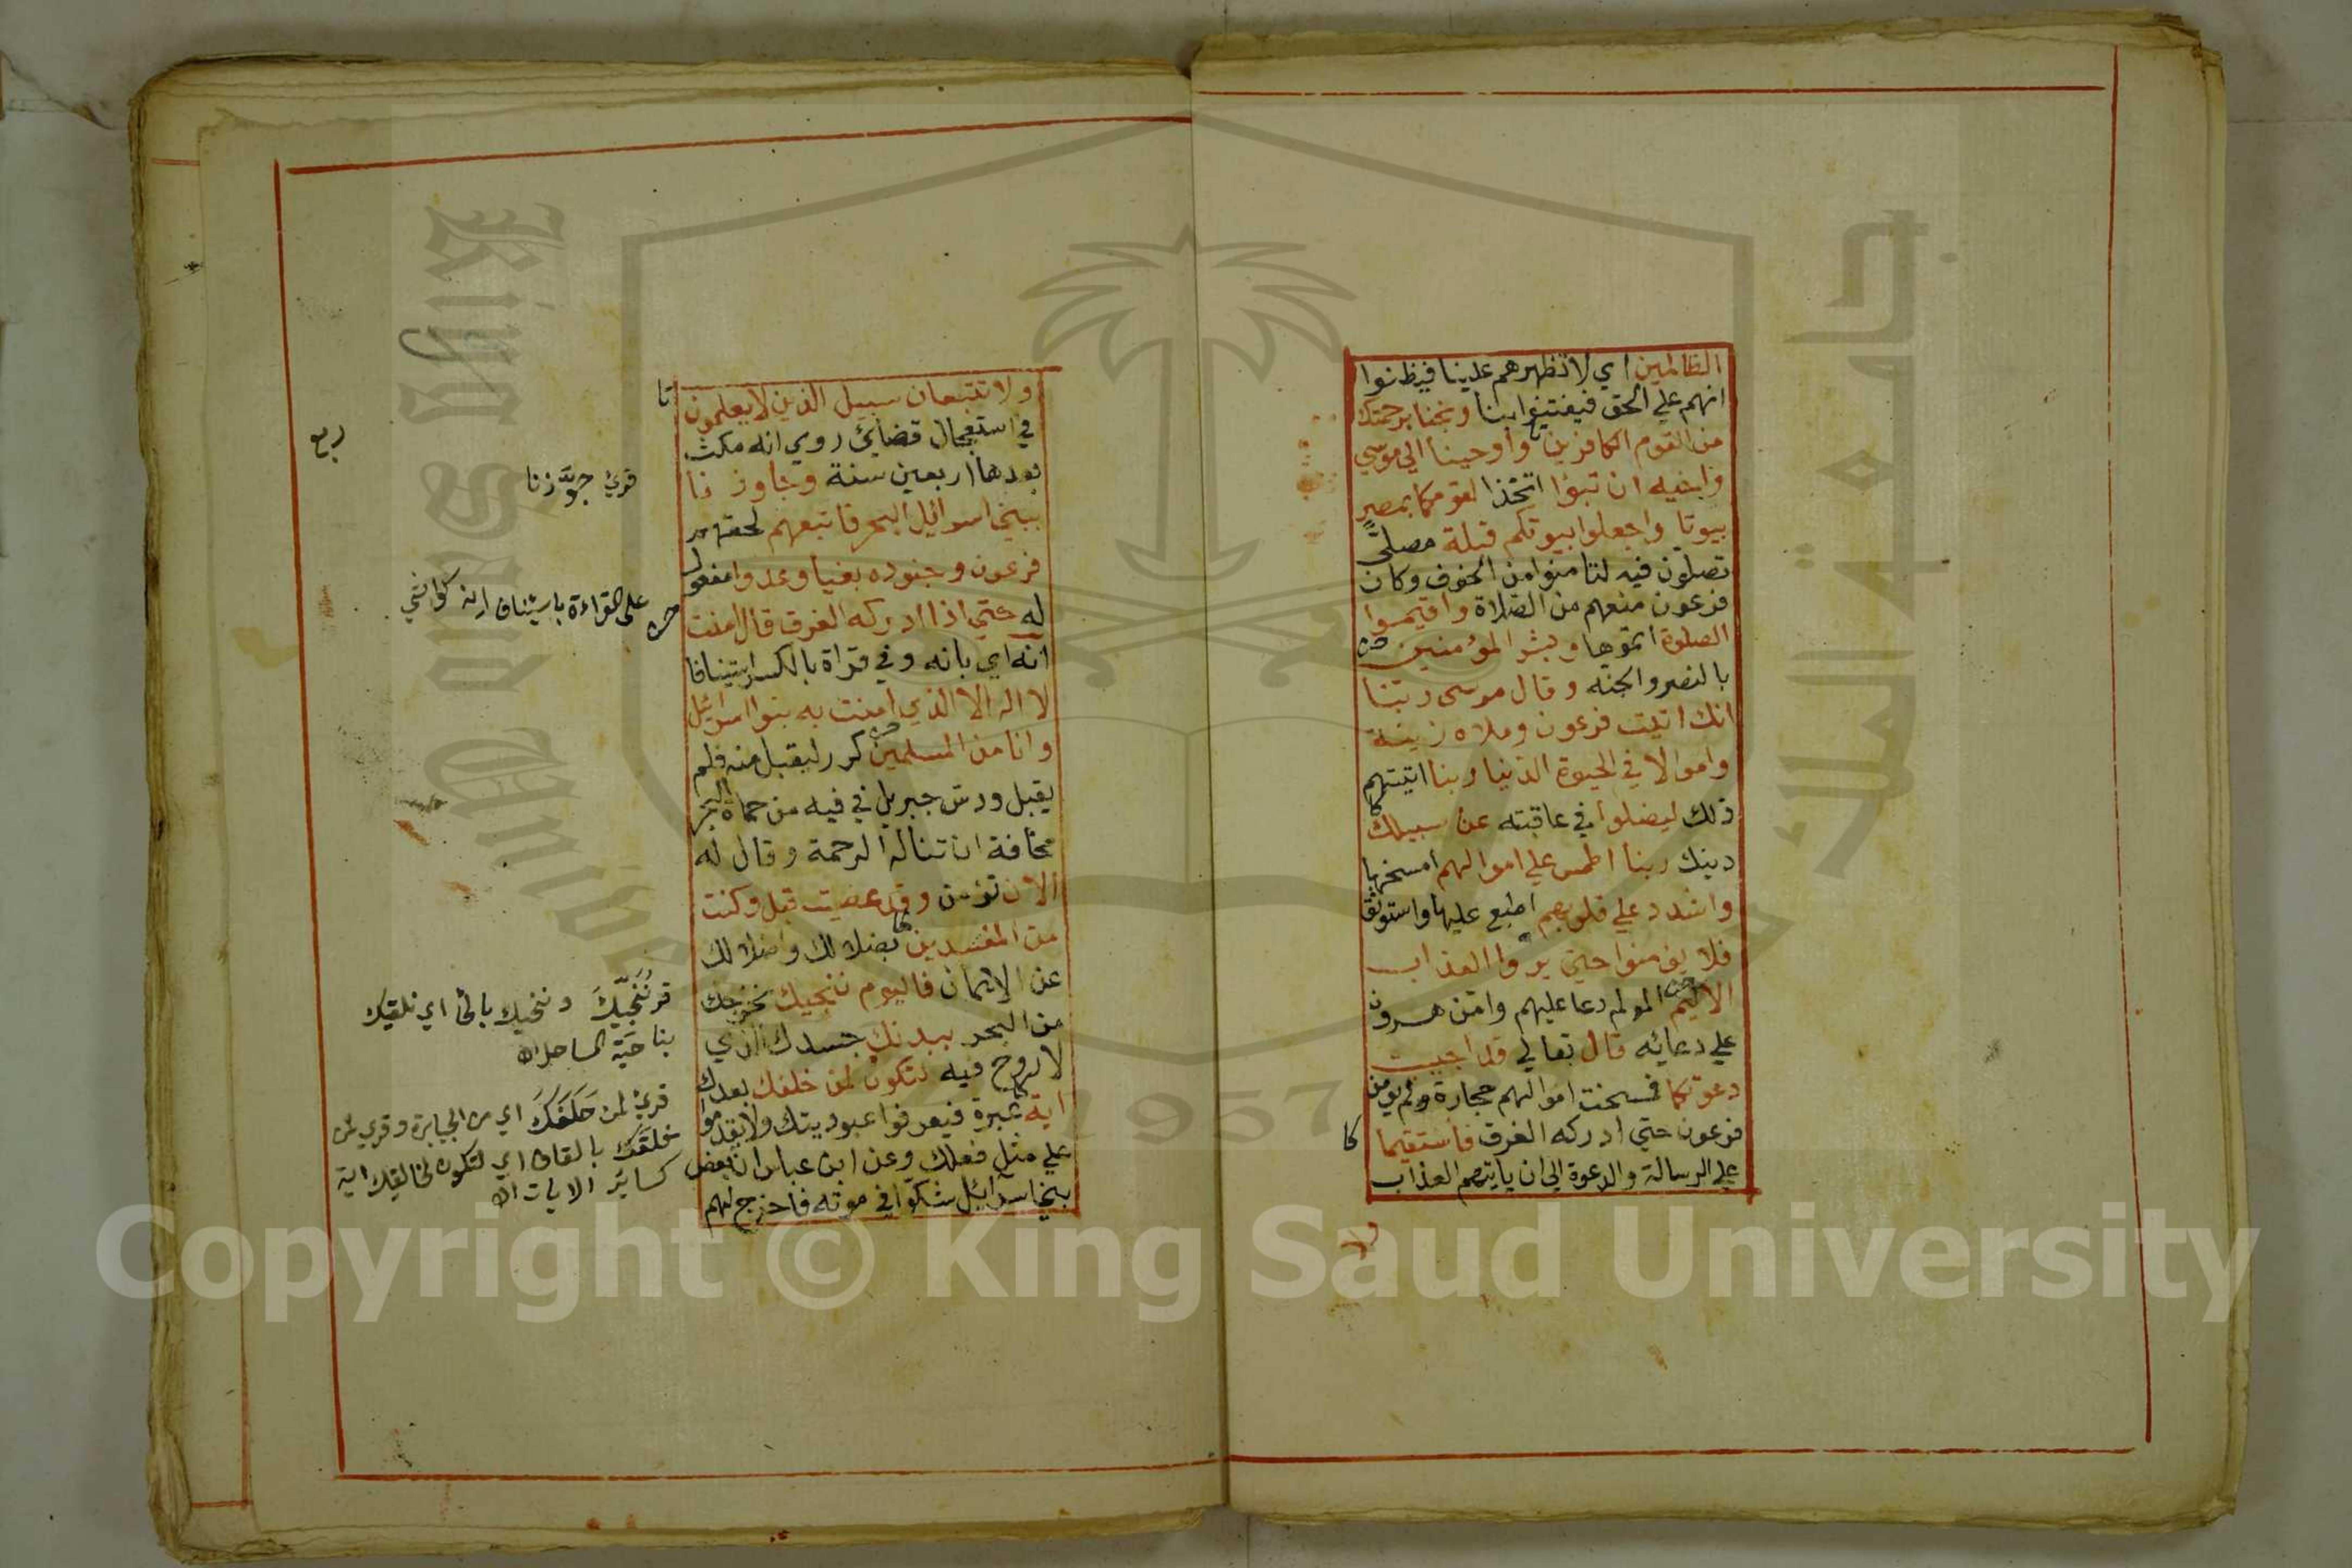 الظالمين اي لا تظهرهم علينا فيظنوا
انهم علي الحق فيفتنوا بنا ونجنا برحمتك
من القوم الكافرين واوحينا الي موسي
واخيه ان تبوٰا اتخذا لقومكما بمصر
بيوتا واجعلوا بيوتكم قبلة مصلًّى
تصلون فيه لتامنوا من الخوف وكان
فرعون منعهم من الصلاة واقيموا
الصلوة اتموها وبشر المؤمنين
بالنصر والجنه وقال موسى ربنا
انك اتيت فرعون وملاه زينة
واموالا في الحيوة الدنيا ربنا اتيتهم
ذلك ليضلوا في عاقبته عن سبيلك
دينك ربنا اطمس علي اموالهم امسخها
واشدد علي قلوبهم اطبع عليها واستوثق
فلا يؤمنوا حتي يروا العذاب
الاليم المولم دعا عليهم وامن هرون
علي دعائه قال تعالي قد اجيبت
دعوتكما فمسخت اموالهم حجارة ولم يومن
فرعون حتي ادركه الغرق فاستقيما
كا
علي الرسالة والدعوة الي ان ياتيهم العذاب
ولا
تا
ولا تتبعان سبيل الذين لا يعلمون
في استعجال قضائ روي انه مكث
بعدها اربعين سنة وجاوزنا
ببني اسرائيل البحر فاتبعهم لحقهم
فرعون وجنوده بغيا وعدوا مفعول
له حتي اذا ادركه الغرق قال امنت
انه اي بانه وفي قراة بالكسر استينافا
لا اله الا الذي امنت به بنوا اسرائيل
وانا من المسلمين كرر ليقبل منه فلم
يقبل ودس جبريل في فيه من حماة البحر
مخافة ان تناله الرحمة وقال له
الآن تؤمن وقد عصيت قبل وكنت
من المفسدين بضلالك واضلالك
عن الايمان فاليوم ننجيك نخرجك
من البحر ببدنك جسدك الذي
لا روح فيه لتكون لمن خلفك بعدك
اية عبرة فيعرفوا عبوديتك ولا يقدموا
علي مثل فعلك وعن ابن عباس ان بعض
بني اسرائيل شكوا في موته فاخرج لهم
ربع
قرئ جوَّزنا
على القراءة باستيناف انه كواشي
قر نُنَجِّيكَ وننحيك بالحا اي نلقيك
بناحية الساحل اه
قرئ لمن خَلَفَكَ اي من الجبابرة وقري لمن
خلقَكَ بالقاف اي لتكون لخالقك اية
كسائر الايات اه
Copyright © King Saud University
King Saud University
جامعة الملك
1957